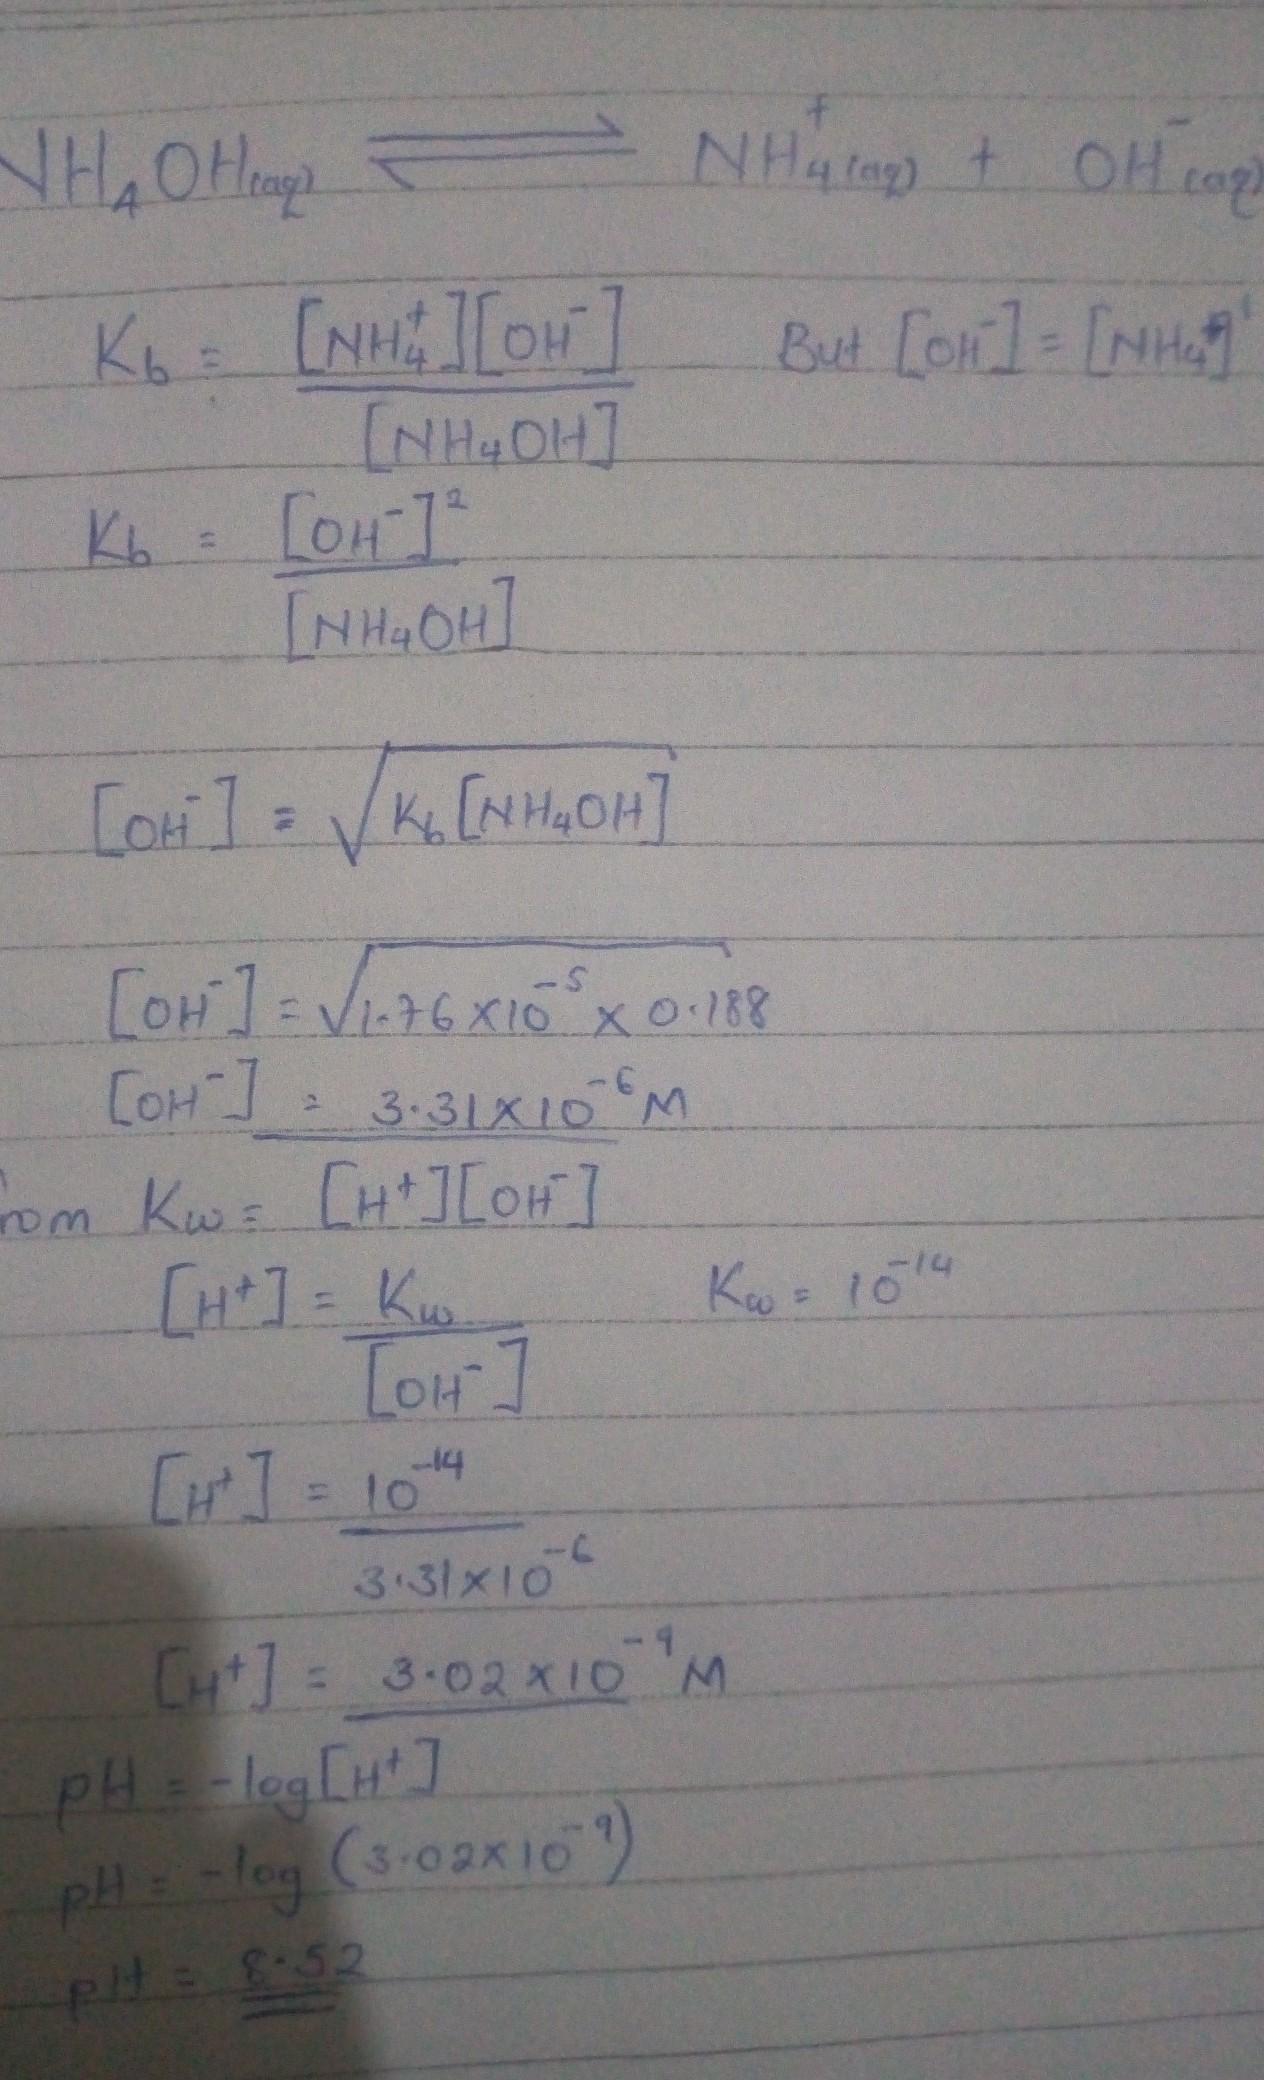 NH₄OH(aq) ⇌ NH₄⁺(aq) + OH⁻(aq)
Kb = [NH₄⁺][OH⁻] / [NH₄OH] But [OH⁻] = [NH₄⁺]
Kb = [OH⁻]² / [NH₄OH]
[OH⁻] = √Kb[NH₄OH]
[OH⁻] = √1.76 x 10⁻⁵ x 0.188
[OH⁻] = 3.31 x 10⁻⁶ M
rom Kw = [H⁺][OH⁻]
[H⁺] = Kw / [OH⁻] Kw = 10⁻¹⁴
[H⁺] = 10⁻¹⁴ / 3.31 x 10⁻⁶
[H⁺] = 3.02 x 10⁻⁹ M
pH = -log[H⁺]
pH = -log (3.02 x 10⁻⁹)
pH = 8.52